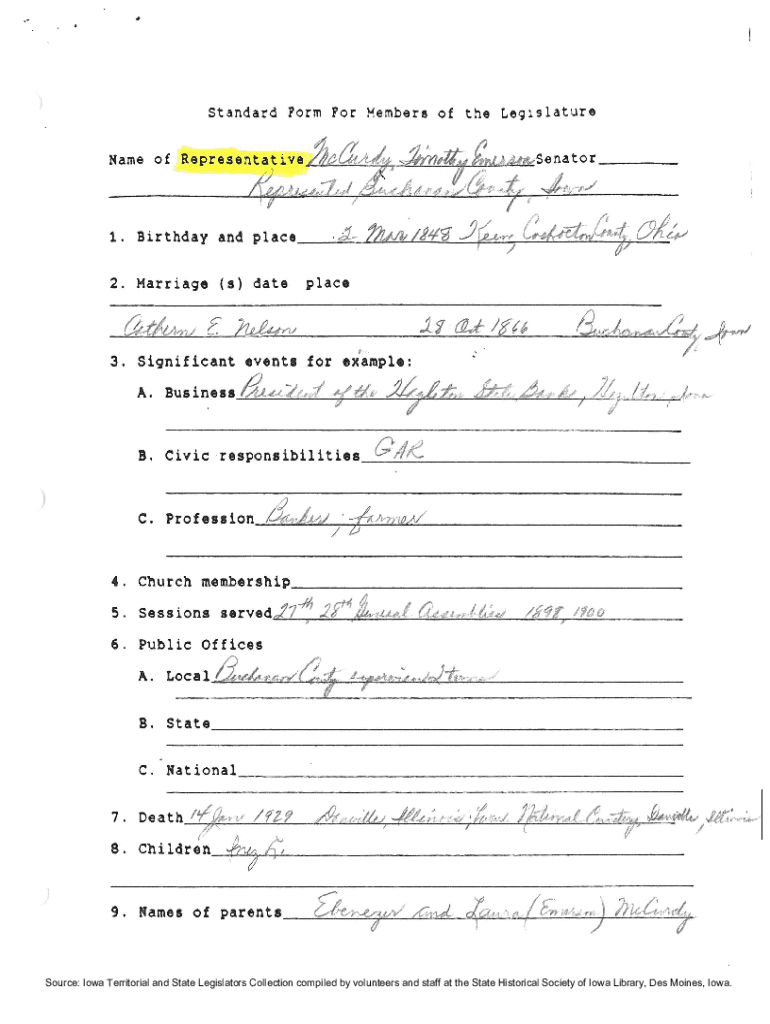 Standard Form For Members of the Legislature
Name of Representative McCurdy, Timothy Emerson Senator
Represented Buchanan County, Iowa
1. Birthday and place 2 Mar 1848 Keene, Coshocton County, Ohio
2. Marriage (s) date place
E. Nelson 28 Oct 1866 Buchanan County, Iowa
3. Significant events for example:
A. Business President of the Hazleton State Banks, Hazelton, Iowa
B. Civic responsibilities GAR
C. Profession Banker; farmer
4. Church membership
5. Sessions served 27th, 28th General Assemblies 1898, 1900
6. Public Offices
A. Local Buchanan County supervisor 2 terms
B. State
C. National
7. Death 14 Jan 1929 Danville, Illinois; National Cemetery, Danville, Illinois
8. Children Inez L.
9. Names of parents Ebenezer and Laura (Emerson) McCurdy
Source: Iowa Territorial and State Legislators Collection compiled by volunteers and staff at the State Historical Society of Iowa Library, Des Moines, Iowa.